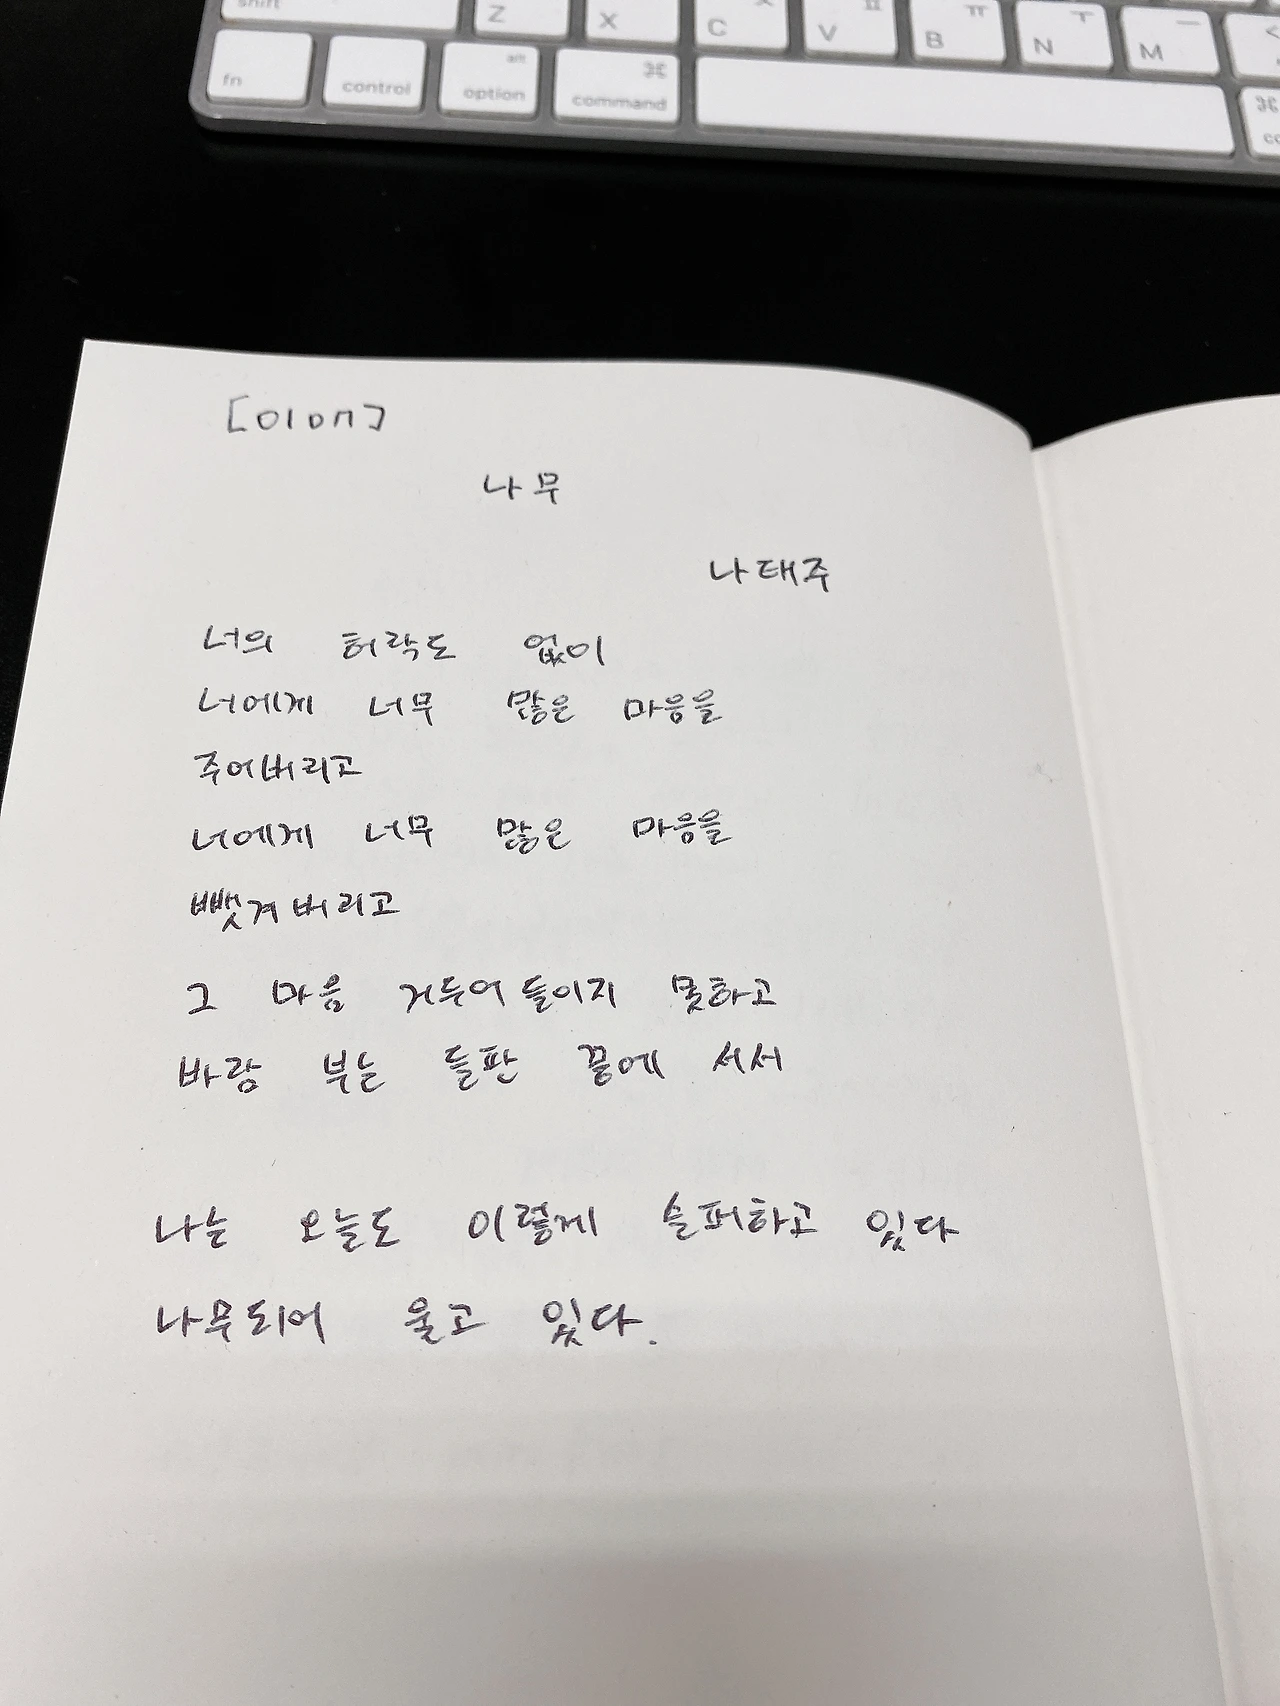 shift Z X C V ㅍ B ㅠ N ㅜ M ㅡ <
fn control alt option ⌘ command ⌘
[0107]
나무
나태주
너의 허락도 없이
너에게 너무 많은 마음을
주어버리고
너에게 너무 많은 마음을
뺏겨버리고
그 마음 거두어들이지 못하고
바람 부는 들판 끝에 서서
나는 오늘도 이렇게 슬퍼하고 있다
나무되어 울고 있다.